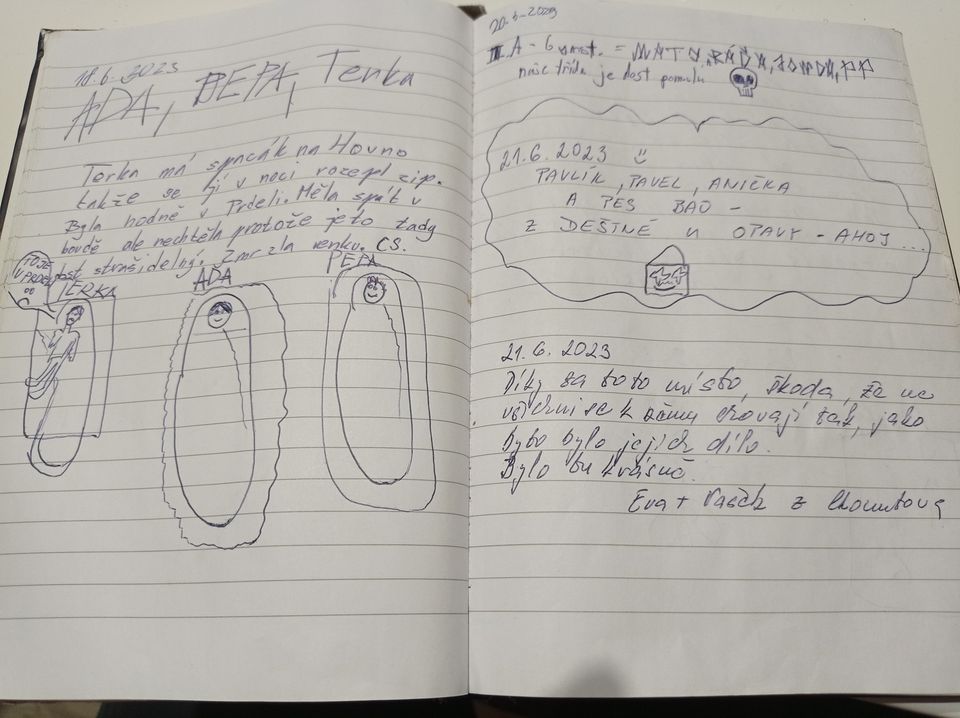 18.6. 2023
ADA, BEPA, Terka
Terka má spacák na Hovno
takže se jí v noci rozepl zip.
Byla hodně v Prdeli. Měla spát v
boudě ale nechtěla protože jeto tady
dost strašidelný. Zmrzla venku. CS.
TO JE
V PRDELI
TERKA
ADA
PEPA
20.6-2023
II.A - 6 = MATY, RÁĎA, JONDA, PP
naše třída je dost pomalu
21.6.2023
PAVLÍK, PAVEL, ANIČKA
A PES BAO -
Z DEŠTNÉ U OPAVY - AHOJ ...
21.6.2023
Díky za toto místo, škoda, že ne
všichni se k němu chovají tak, jako
by to bylo jejich dílo.
Bylo tu krásně.
Eva + Vašek z Chomutova